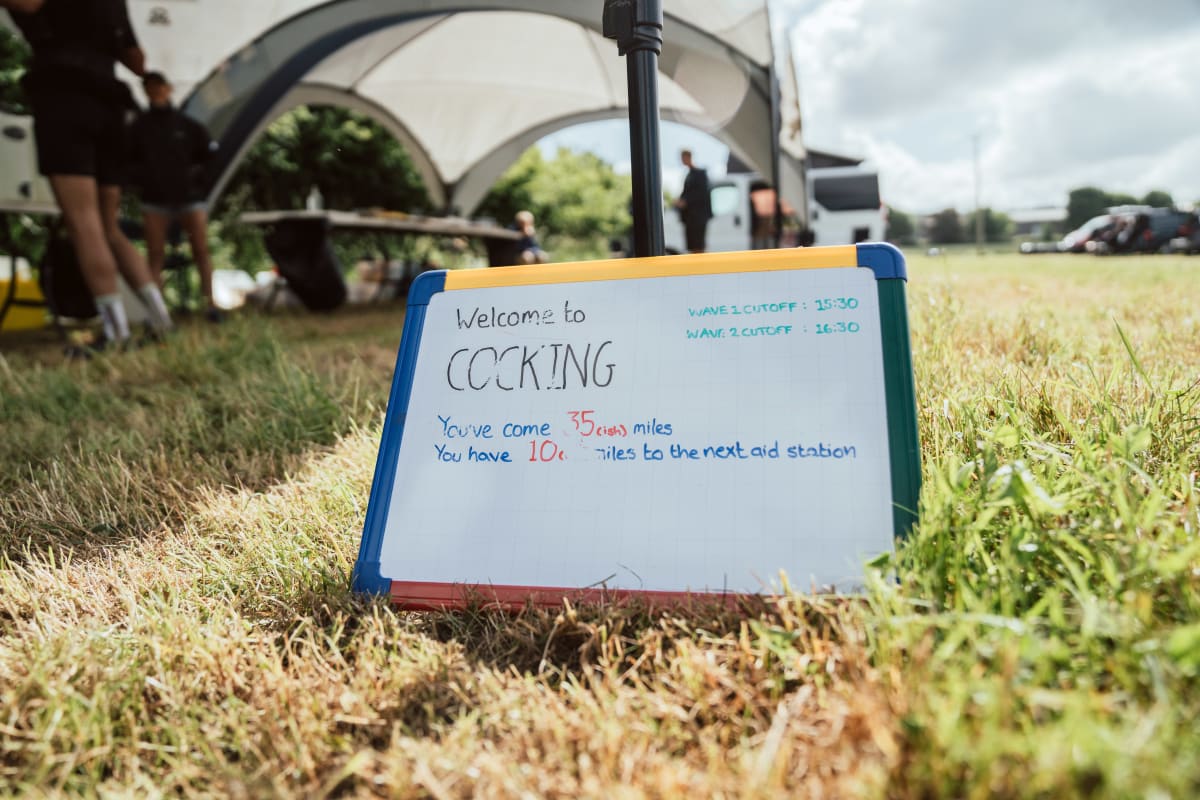 Welcome to
COCKING
WAVE 1 CUTOFF : 15:30
WAVE 2 CUTOFF : 16:30
You've come 35(ish) miles
You have 10 miles to the next aid station